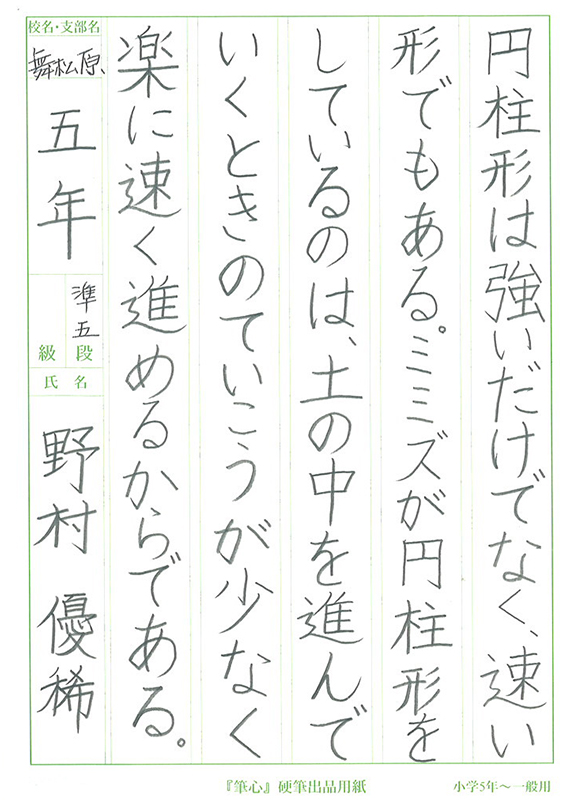 円柱形は強いだけでなく、速い
形でもある。ミミズが円柱形を
しているのは、土の中を進んで
いくときのていこうが少なく
楽に速く進めるからである。
校名・支部名
舞松原
五年
準五
段
級
氏名
野村 優稀
『筆心』硬筆出品用紙
小学5年～一般用